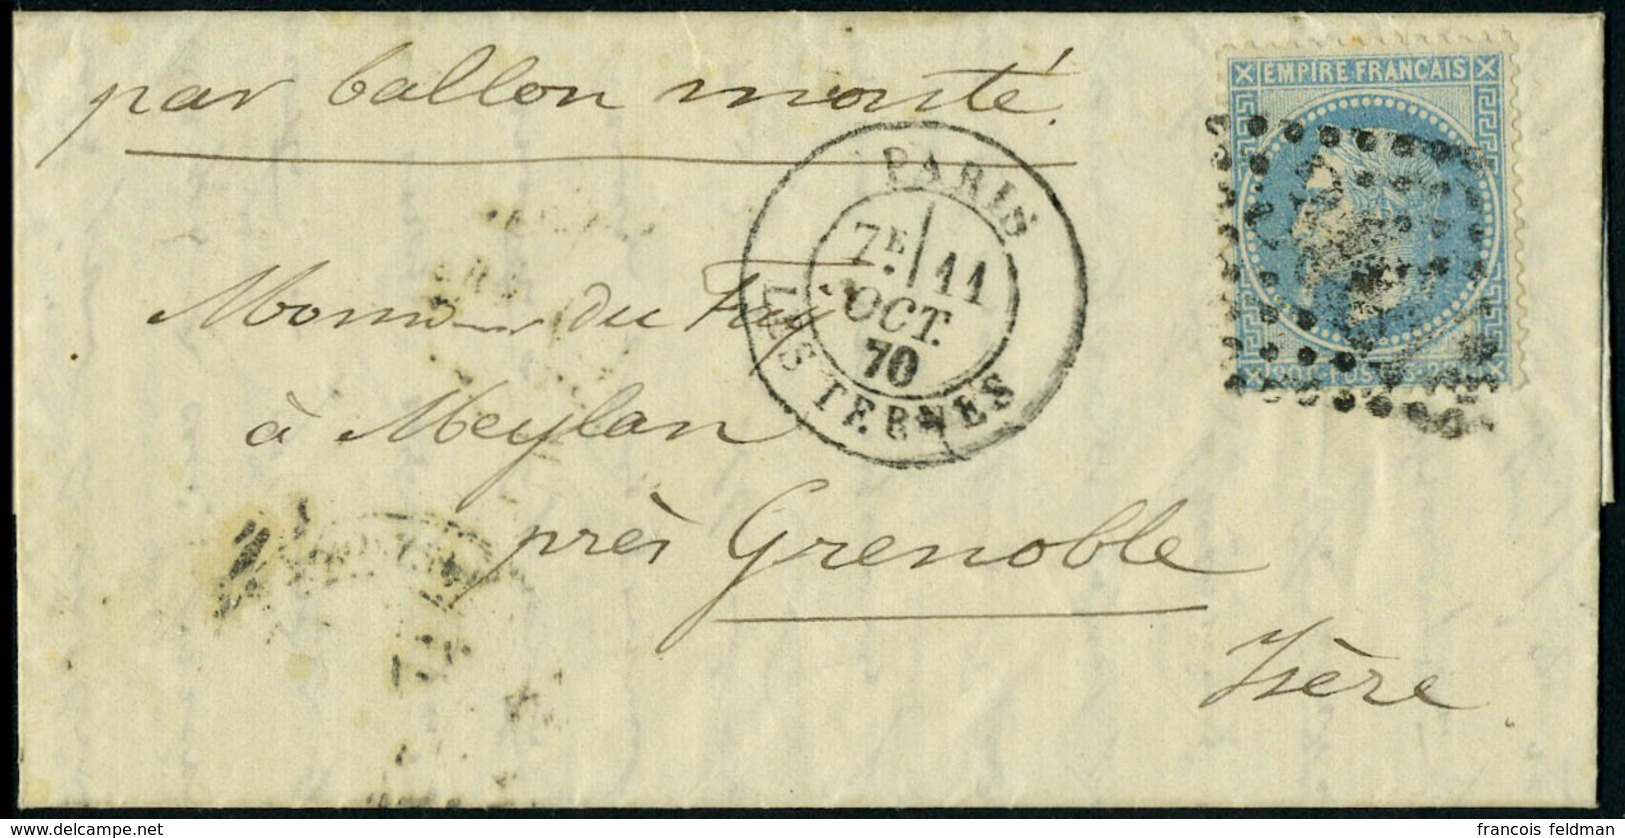 par ballon monté.
EMPIRE FRANCAIS
PARIS
7E 11
OCT.
70
LES TERNES
Monsieur du Fay
à Meylan
près Grenoble
Isère.
delcampe.net
francois feldman